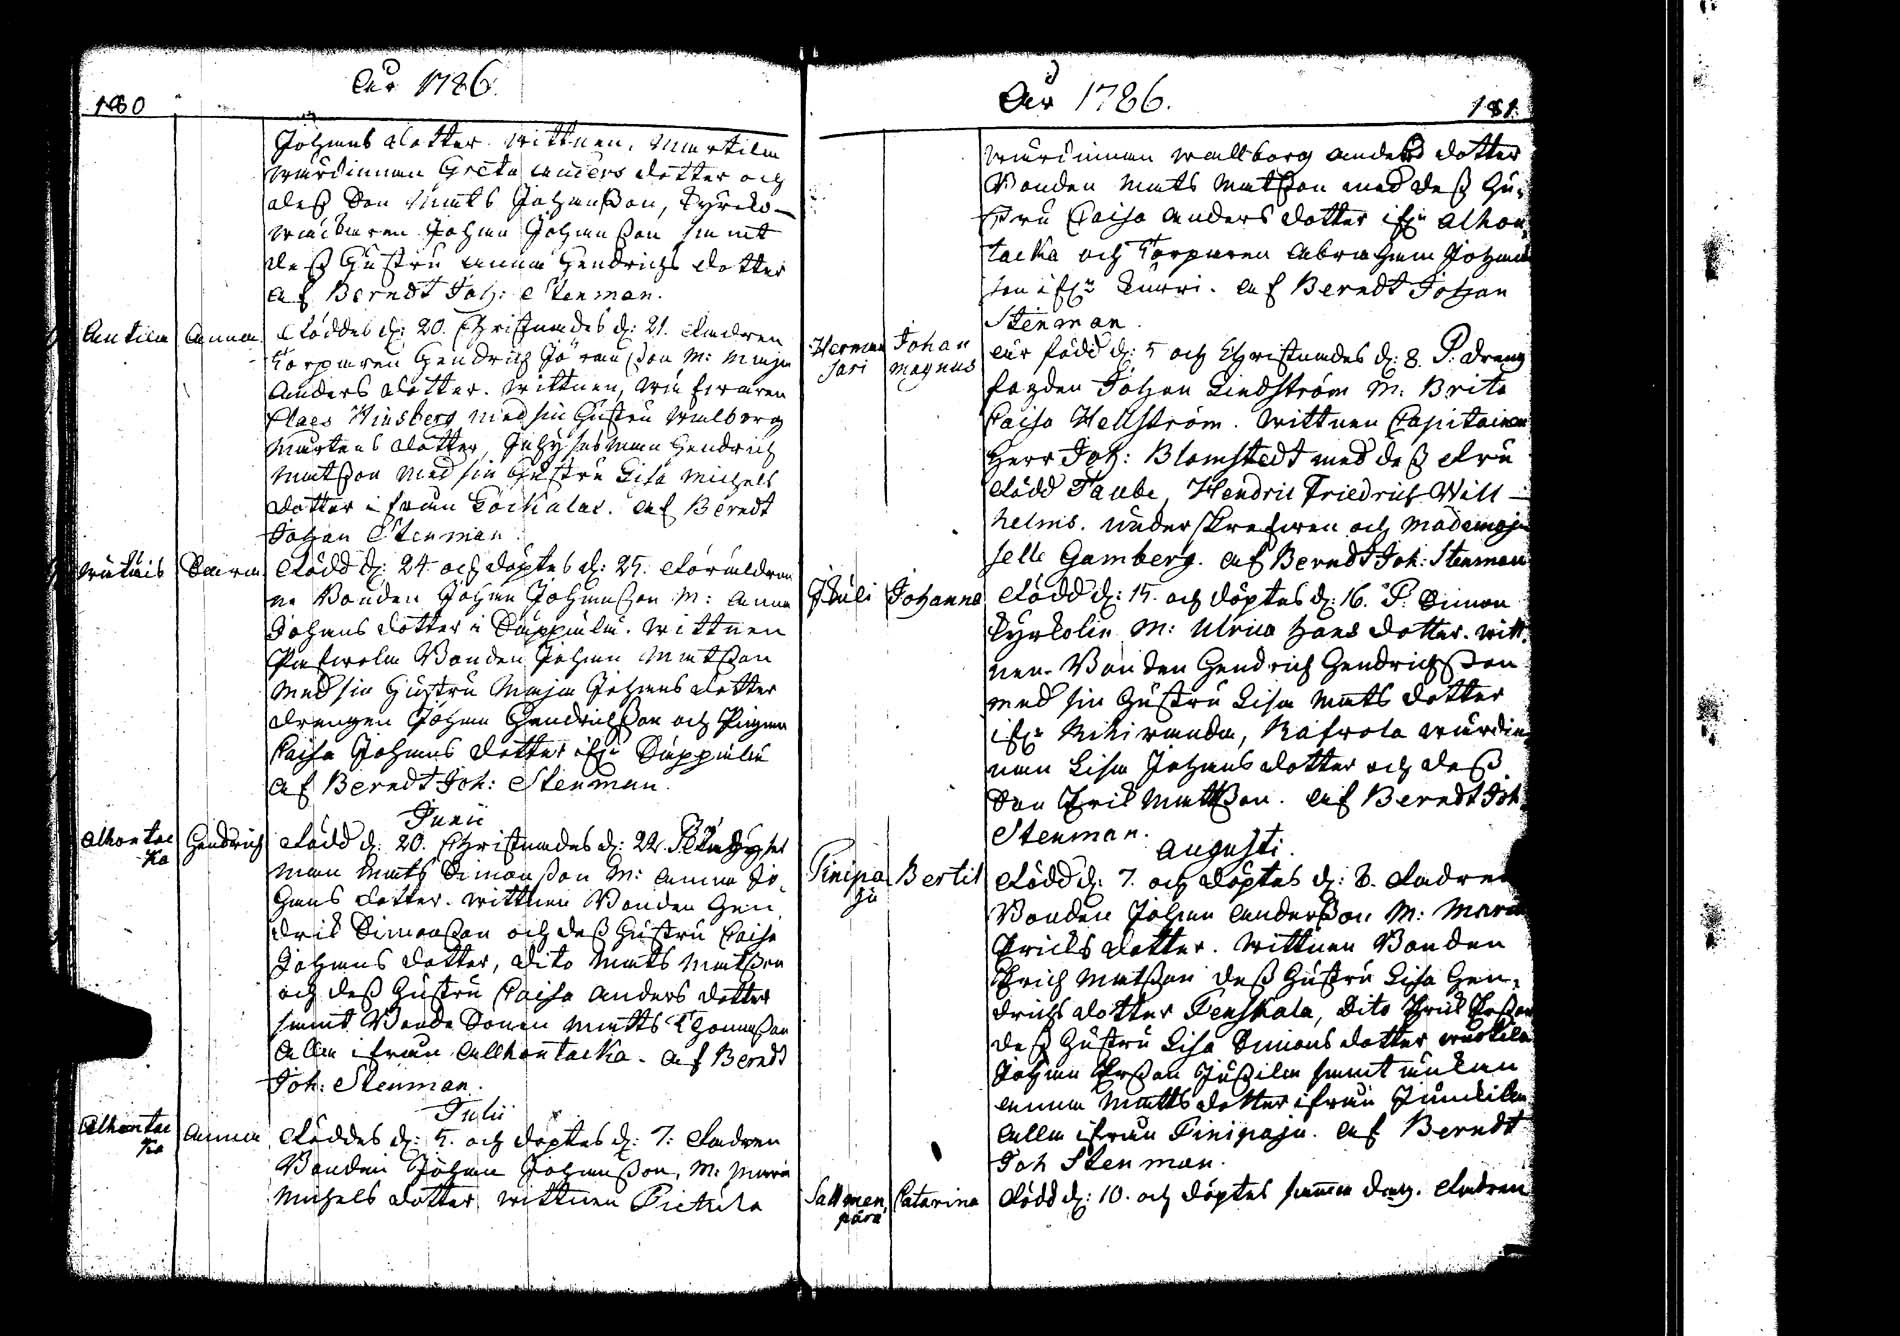 180
Åhr 1786.
Johans dotter. Wittnen, Martila
wärdinnan Greta anders dotter och
dess Son Mats Johansson, Kyrko-
wäcktaren Johan Johansson samt
dess Hustru anna Hendrichs dotter
af Berndt Joh: Stenman.
Anttila
Anna
Föddes d: 20. Christnades d: 21. Fadren
Torparen Hendrich Göransson M: Maja
Anders dotter. Wittnen,
Claes Winsberg med sin Hustru Walborg
Mårtens dotter, Inhyses Man Hendrich
Matsson med sin Hustru Lisa Michels
dotter ifrån Kockalax. af Berndt
Johan Stenman
Saara
Född d: 24 och döptes d: 25. Föräldrar
ne Bonden Johan Johansson M: Anna
Johans dotter i Suppiala. Wittnen
Bonden Johan Matsson
med sin Hustru Maja Johans dotter
drengen Johan Hendrichsson och Pigan
Caisa Johans dotter ifrn Suppiala
af Berndt Joh: Stenman.
Junii
Alhontac
ka
Hendrich
Född d: 20. Christnades d: 22. P: Inhyses
man Mats Simonsson M: Anna Jo-
hans dotter. Wittnen Bonden Hen
drik Simonsson och dess Hustru Caisa
Johans dotter, dito Mats Matsson
och dess Hustru Caisa anders dotter
samt Bonde Sonen Matts Thomasson
Alla ifrån Allhontacka. af Berndt
Joh: Stenman.
Julii
Alhontac
ka
Anna
Föddes d: 5. och döptes d: 7: Fadren
Bonden Johan Johansson, M: Maria
Michels dotter wittnen Pietila
Åhr 1786.
181.
wärdinnan wallborg anders dotter
Bonden Mats Matsson med dess Hu-
stru Caisa anders dotter ifrn Alhon
tacka och Torparen Abraham Johans
son ifrn Kurri. af Berndt Johan
Stenman.
Herman
sari
Johan
magnus
är född d: 5 och Christnades d: 8. P: dreng
fogden Johan Lindström M: Brita
Caisa Hellström. Wittnen Capitainen
Herr Joh: Blomstedt med dess Fru
Född Taube, Hendric Friedrich Will-
helms. Underskrefwen och Mademoj-
selle Gamberg. af Berndt Joh: Stenman
Johanna
Född d: 15. och döptes d: 16. P: Simon
Kyrkolin M: Ulrica Hans dotter. Witt-
nen. Bonden Hendrich Hendrichsson
med sin Hustru Lisa Mats dotter
ifrn Rikiranda, Rafvola wärdin
nan Lisa Johans dotter och dess
Son Erik Mattsson. af Berndt Joh.
Stenman.
Augusti.
Pinipa
ju
Bertil
Född d: 7. och döptes d: 8. Fadren
Bonden Johan Andersson M: Maria
Ericks dotter. Wittnen Bonden
Erich Matsson dess Hustru Lisa Hen-
drichs dotter Penskala, dito Erich
dess Hustru Lisa Simons dotter Martila
Johan Ersson Jussila samt
anna Matts dotter ifrån Junkila
alla ifrån Pinipaju. af Berndt
Joh Stenman.
Sallmen
pära
Catarina
Född d: 10. och döptes samma dag. Fadren